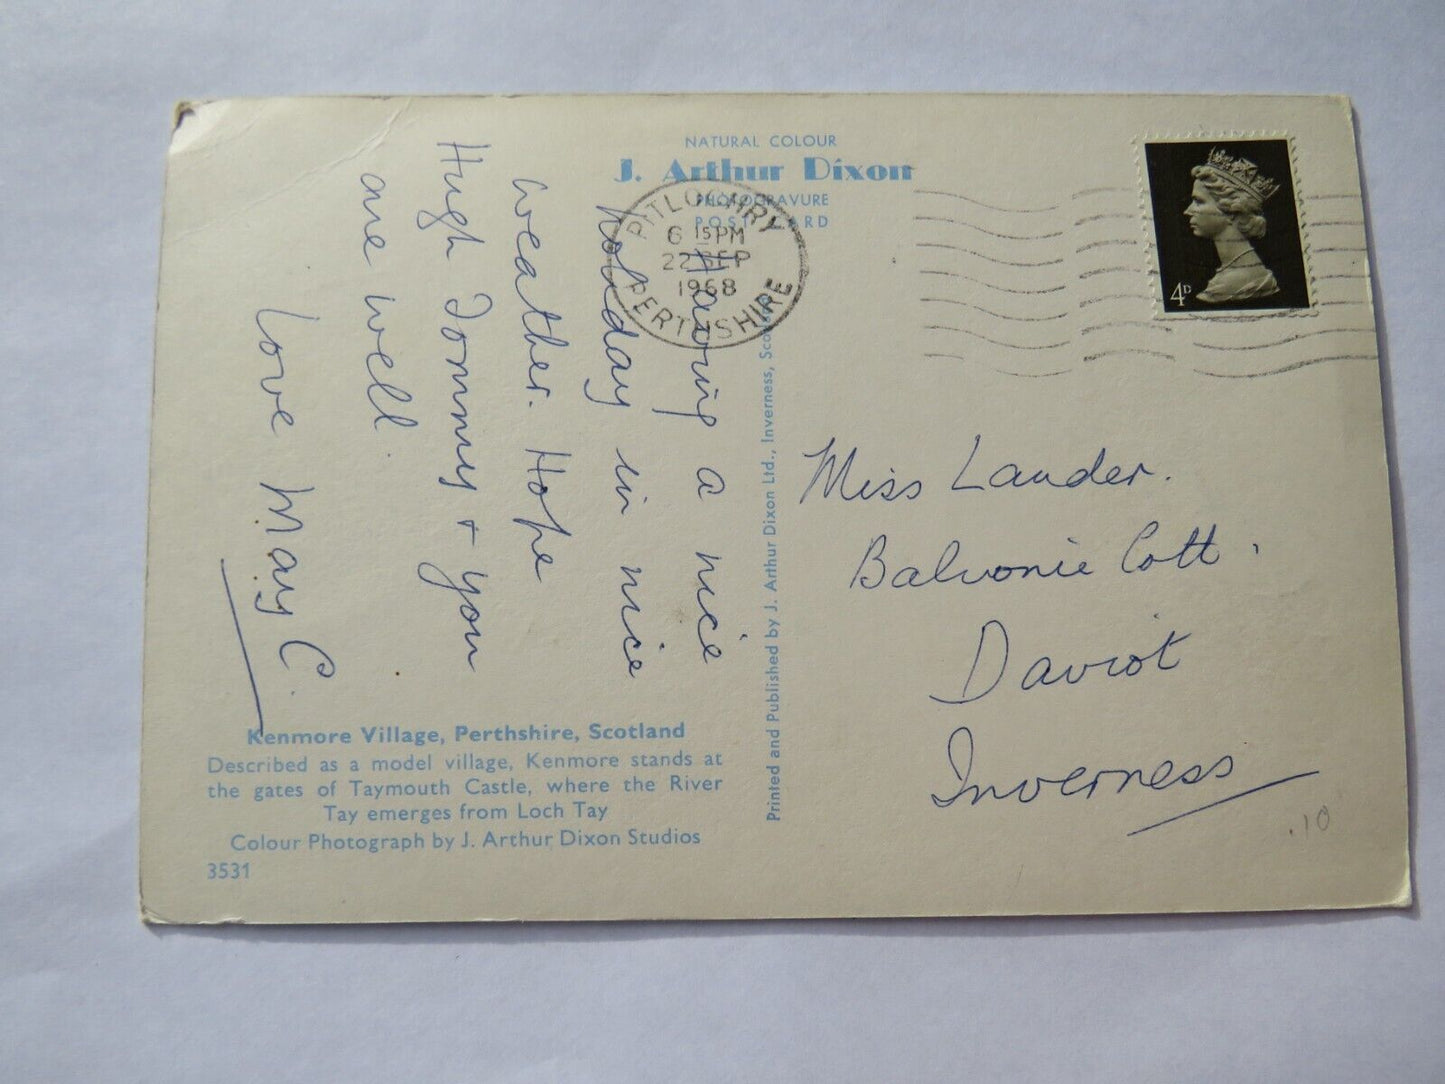 NATURAL COLOUR
J. Arthur Dixon
PHOTOGRAVURE
POST CARD
PITLOCHRY
6 15 PM
22 SEP
1968
PERTHSHIRE
4D
Having a nice
holiday in nice
weather. Hope
Hugh Tommy + you
are well.
Love May C.
Kenmore Village, Perthshire, Scotland
Described as a model village, Kenmore stands at
the gates of Taymouth Castle, where the River
Tay emerges from Loch Tay
Colour Photograph by J. Arthur Dixon Studios
3531
Printed and Published by J. Arthur Dixon Ltd., Inverness, Scotland
Miss Lauder.
Balvonie Cott.
Daviot
Inverness
.10